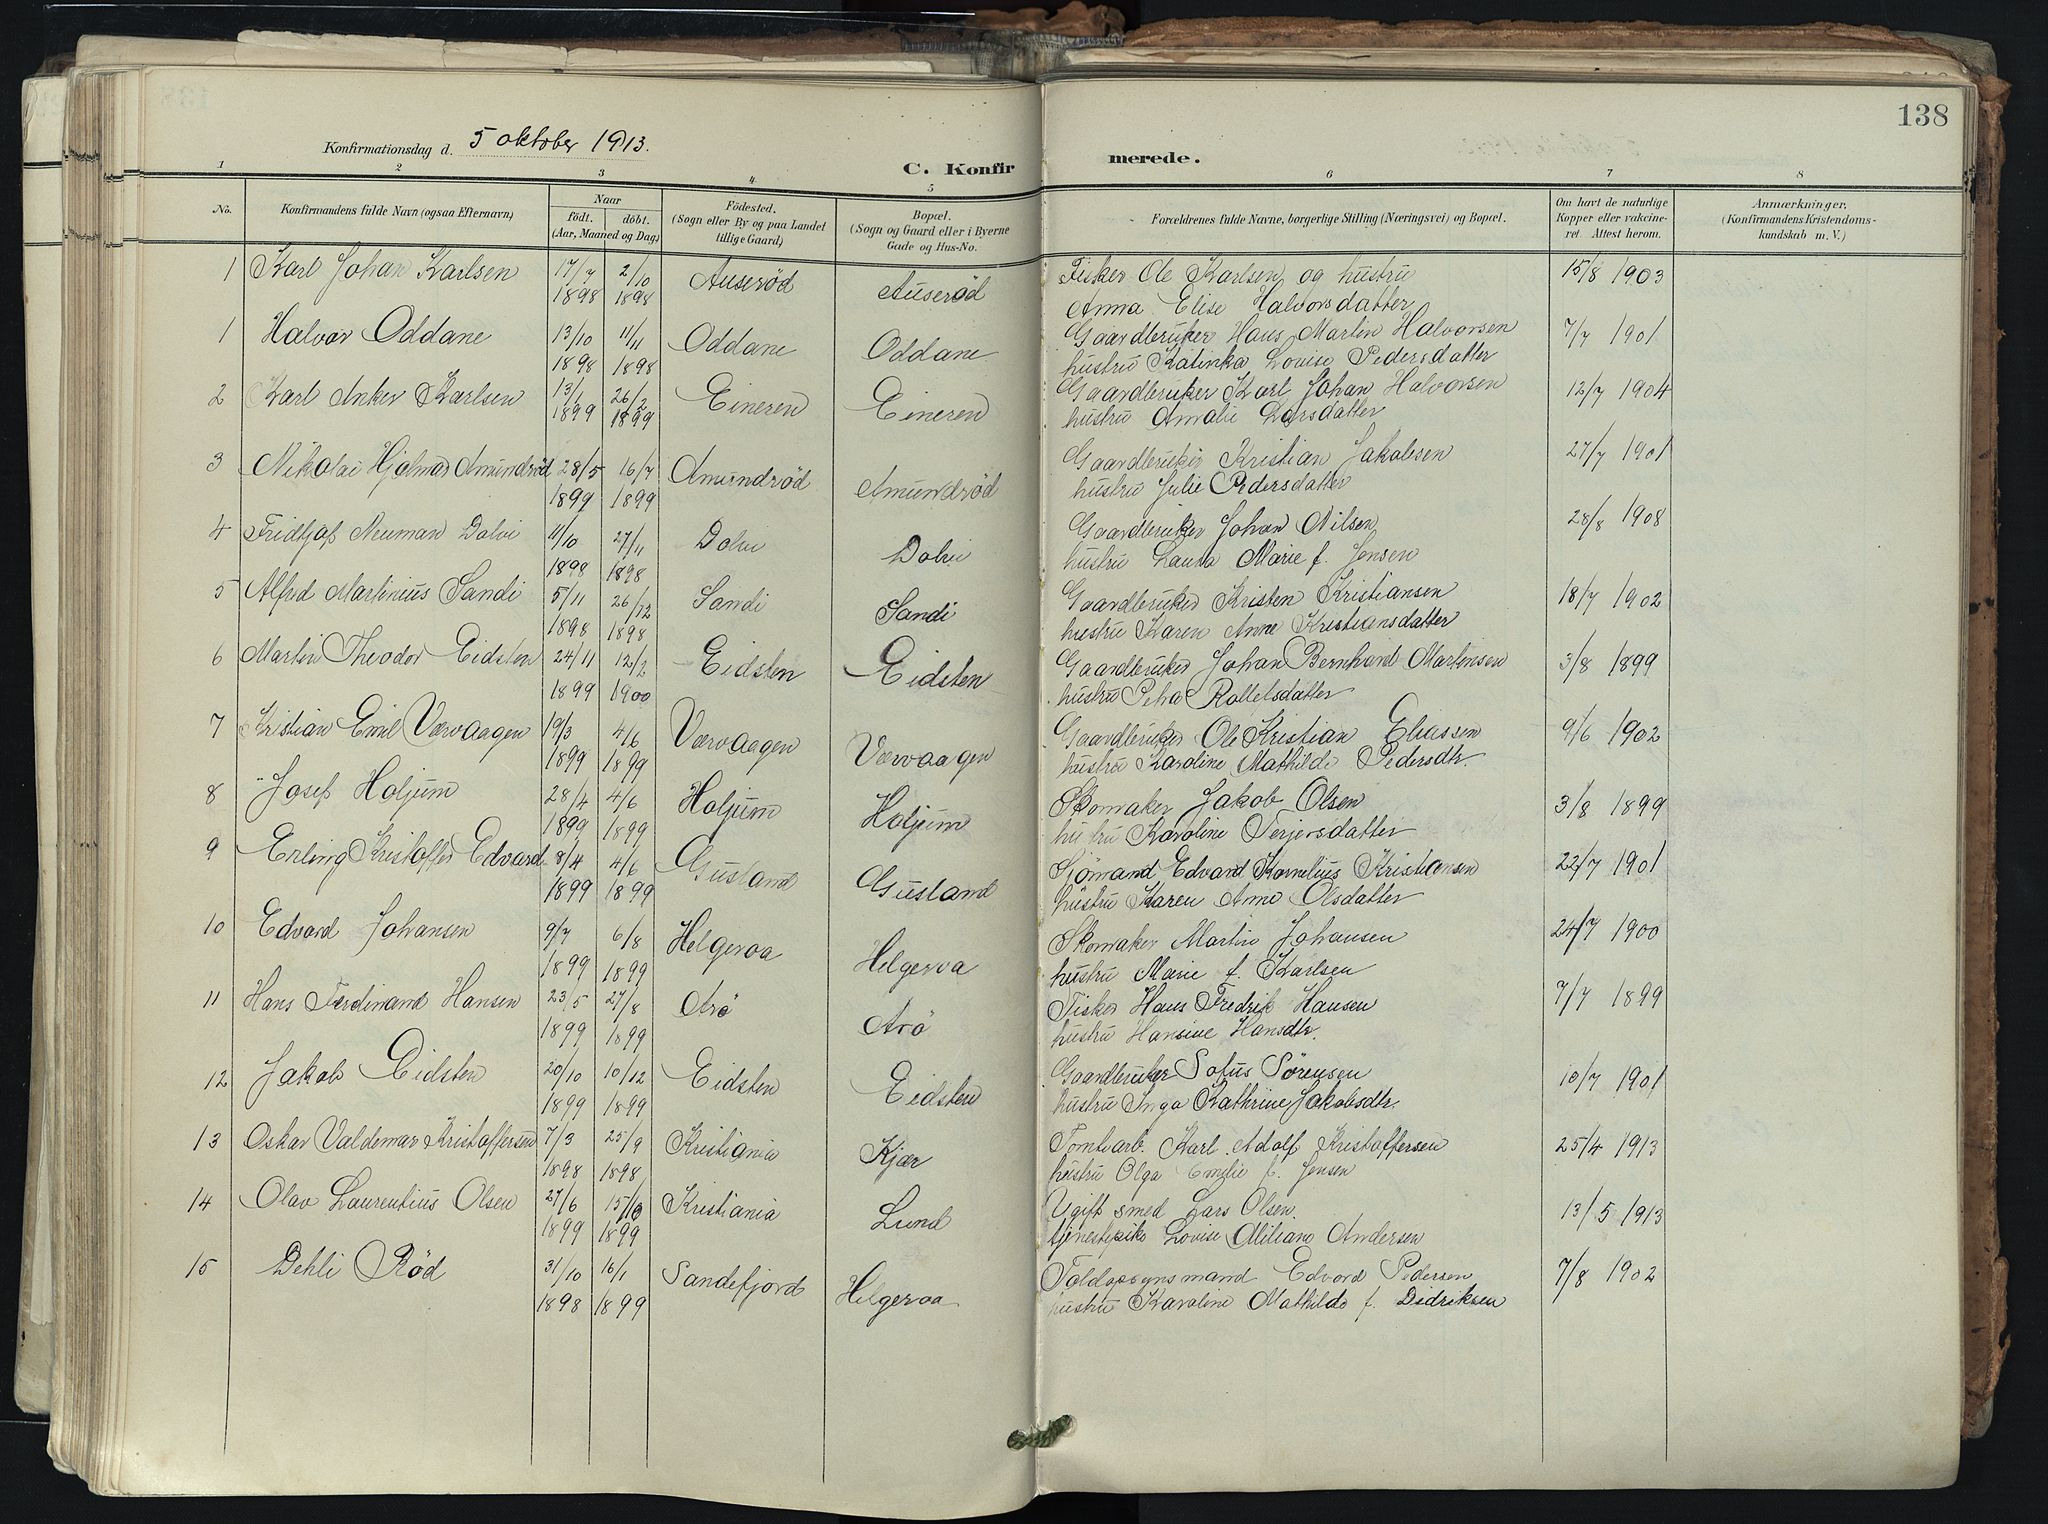 138
Konfirmationsdag d. 5 oktober 1913.
C. Konfirmerede.
1 2 3 4 5 6 7 8
No.
Konfirmandens fulde Navn (ogsaa Efternavn)
Naar
födt. döbt.
(Aar, Maaned og Dag)
Födested.
(Sogn eller By og paa Landet
tillige Gaard)
Bopæl.
(Sogn og Gaard eller i Byerne
Gade og Hus-No.
Forældrenes fulde Navne, borgerlige Stilling (Næringsvei) og Bopæl.
Om havt de naturlige
Kopper eller vakcine-
ret. Attest herom.
Anmærkninger,
(Konfirmandens Kristendoms-
kundskab m. V.)
1 Karl Johan Karlsen 17/7 2/10 Auseröd Auseröd Fisker Ole Karlsen og hustru 15/8 1903
1898 1898 Anna Elise Halvorsdatter
1 Halvor Oddane 13/10 11/11 Oddane Oddane Gaardbruker Hans Martin Halvorsen 7/7 1901
1898 1898 hustru Katinka Lovise Pedersdatter
2 Karl Anker Karlsen 13/1 26/2 Eineren Eineren Gaardbruker Karl Johan Halvorsen 12/7 1904
1899 1899 hustru Amalie Larsdatter
3 Nikolai Hjalmar Amundröd 28/5 16/7 Amundröd Amundröd Gaardbruker Kristian Jakobsen 27/7 1901
1899 1899 hustru Julie Pedersdatter
4 Fridtjof Neuman Dolvi 11/10 27/11 Dolvi Dolvi Gaardbruker Johan Nilsen 28/8 1908
1898 1898 hustru Laura Marie f. Jensen
5 Alfred Martinius Sandi 5/11 26/12 Sandi Sandi Gaardbruker Kristen Kristiansen 18/7 1902
1898 1898 hustru Karen Anne Kristiansdatter
6 Martin Theodor Eidsten 24/11 12/2 Eidsten Eidsten Gaardbruker Johan Bernhard Martinsen 3/8 1899
1899 1900 hustru Petra Rollefsdatter
7 Kristian Emil Værvaagen 19/3 4/6 Værvaagen Værvaagen Gaardbruker Ole Kristian Eliassen 9/6 1902
1899 1899 hustru Karoline Mathilde Pedersdtr.
8 Josef Holjum 28/4 4/6 Holjum Holjum Skomaker Jakob Olsen 3/8 1899
1899 1899 hustru Karoline Terjersdatter
9 Erling Kristoffer Edvard 8/4 4/6 Gusland Gusland Sjömand Edvard Kornelius Kristiansen 22/7 1901
1899 1899 hustru Karen Anne Olsdatter
10 Edvard Johansen 9/7 6/8 Helgeroa Helgeroa Skomaker Martin Johansen 24/7 1900
1899 1899 hustru Marie f. Karlsen
11 Hans Ferdinand Hansen 23/5 27/8 Arö Arö Fisker Hans Fredrik Hansen 7/7 1899
1899 1899 hustru Hansine Hansdtr.
12 Jakob Eidsten 20/10 10/12 Eidsten Eidsten Gaardbruker Sofus Sörensen 10/7 1901
1899 1899 hustru Inga Kathrine Jakobsdtr.
13 Oskar Valdemar Kristoffersen 7/3 25/9 Kristiania Kjær Tomtearb. Karl Adolf Kristoffersen 25/4 1913
1898 1898 hustru Olga Emilie f. Jensen
14 Olav Laurentius Olsen 27/6 15/10 Kristiania Lund Ugift smed Lars Olsen. 13/5 1913
1899 1899 tjenestepike Lovise Miliane Andersen
15 Dehli Röd 31/10 16/1 Sandefjord Helgeroa Toldopsynsmand Edvard Pedersen 7/8 1902
1898 1899 hustru Karoline Mathilde f. Didriksen